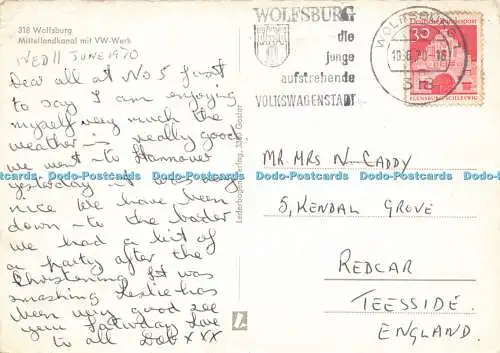 318 Wolfsburg
Mittellandkanal mit VW-Werk
WED 11 JUNE 1970
Dear all at No 5 Just
to say I am enjoying
myself very much the
weather is really good
we went to Hannover
yesterday it was very
nice We have been
down to the border
we had a bit of
a party after the
Christening Fet was
smashing Leslie has
been very good see
you Saturday Love
to all Deb x xx
WOLFSBURG
die
junge
aufstrebende
VOLKSWAGENSTADT
WOLFSBURG
10.6.70-18
318
Deutsche Bundespost
30
FLENSBURG/SCHLESWIG
MR. MRS N. CADDY
5, KENDAL GROVE
REDCAR
TEESSIDE.
ENGLAND.
Dodo-Postcards Dodo-Postcards Dodo-Postcards Dodo-Postcards Dodo-Postcards Dodo-Postcards